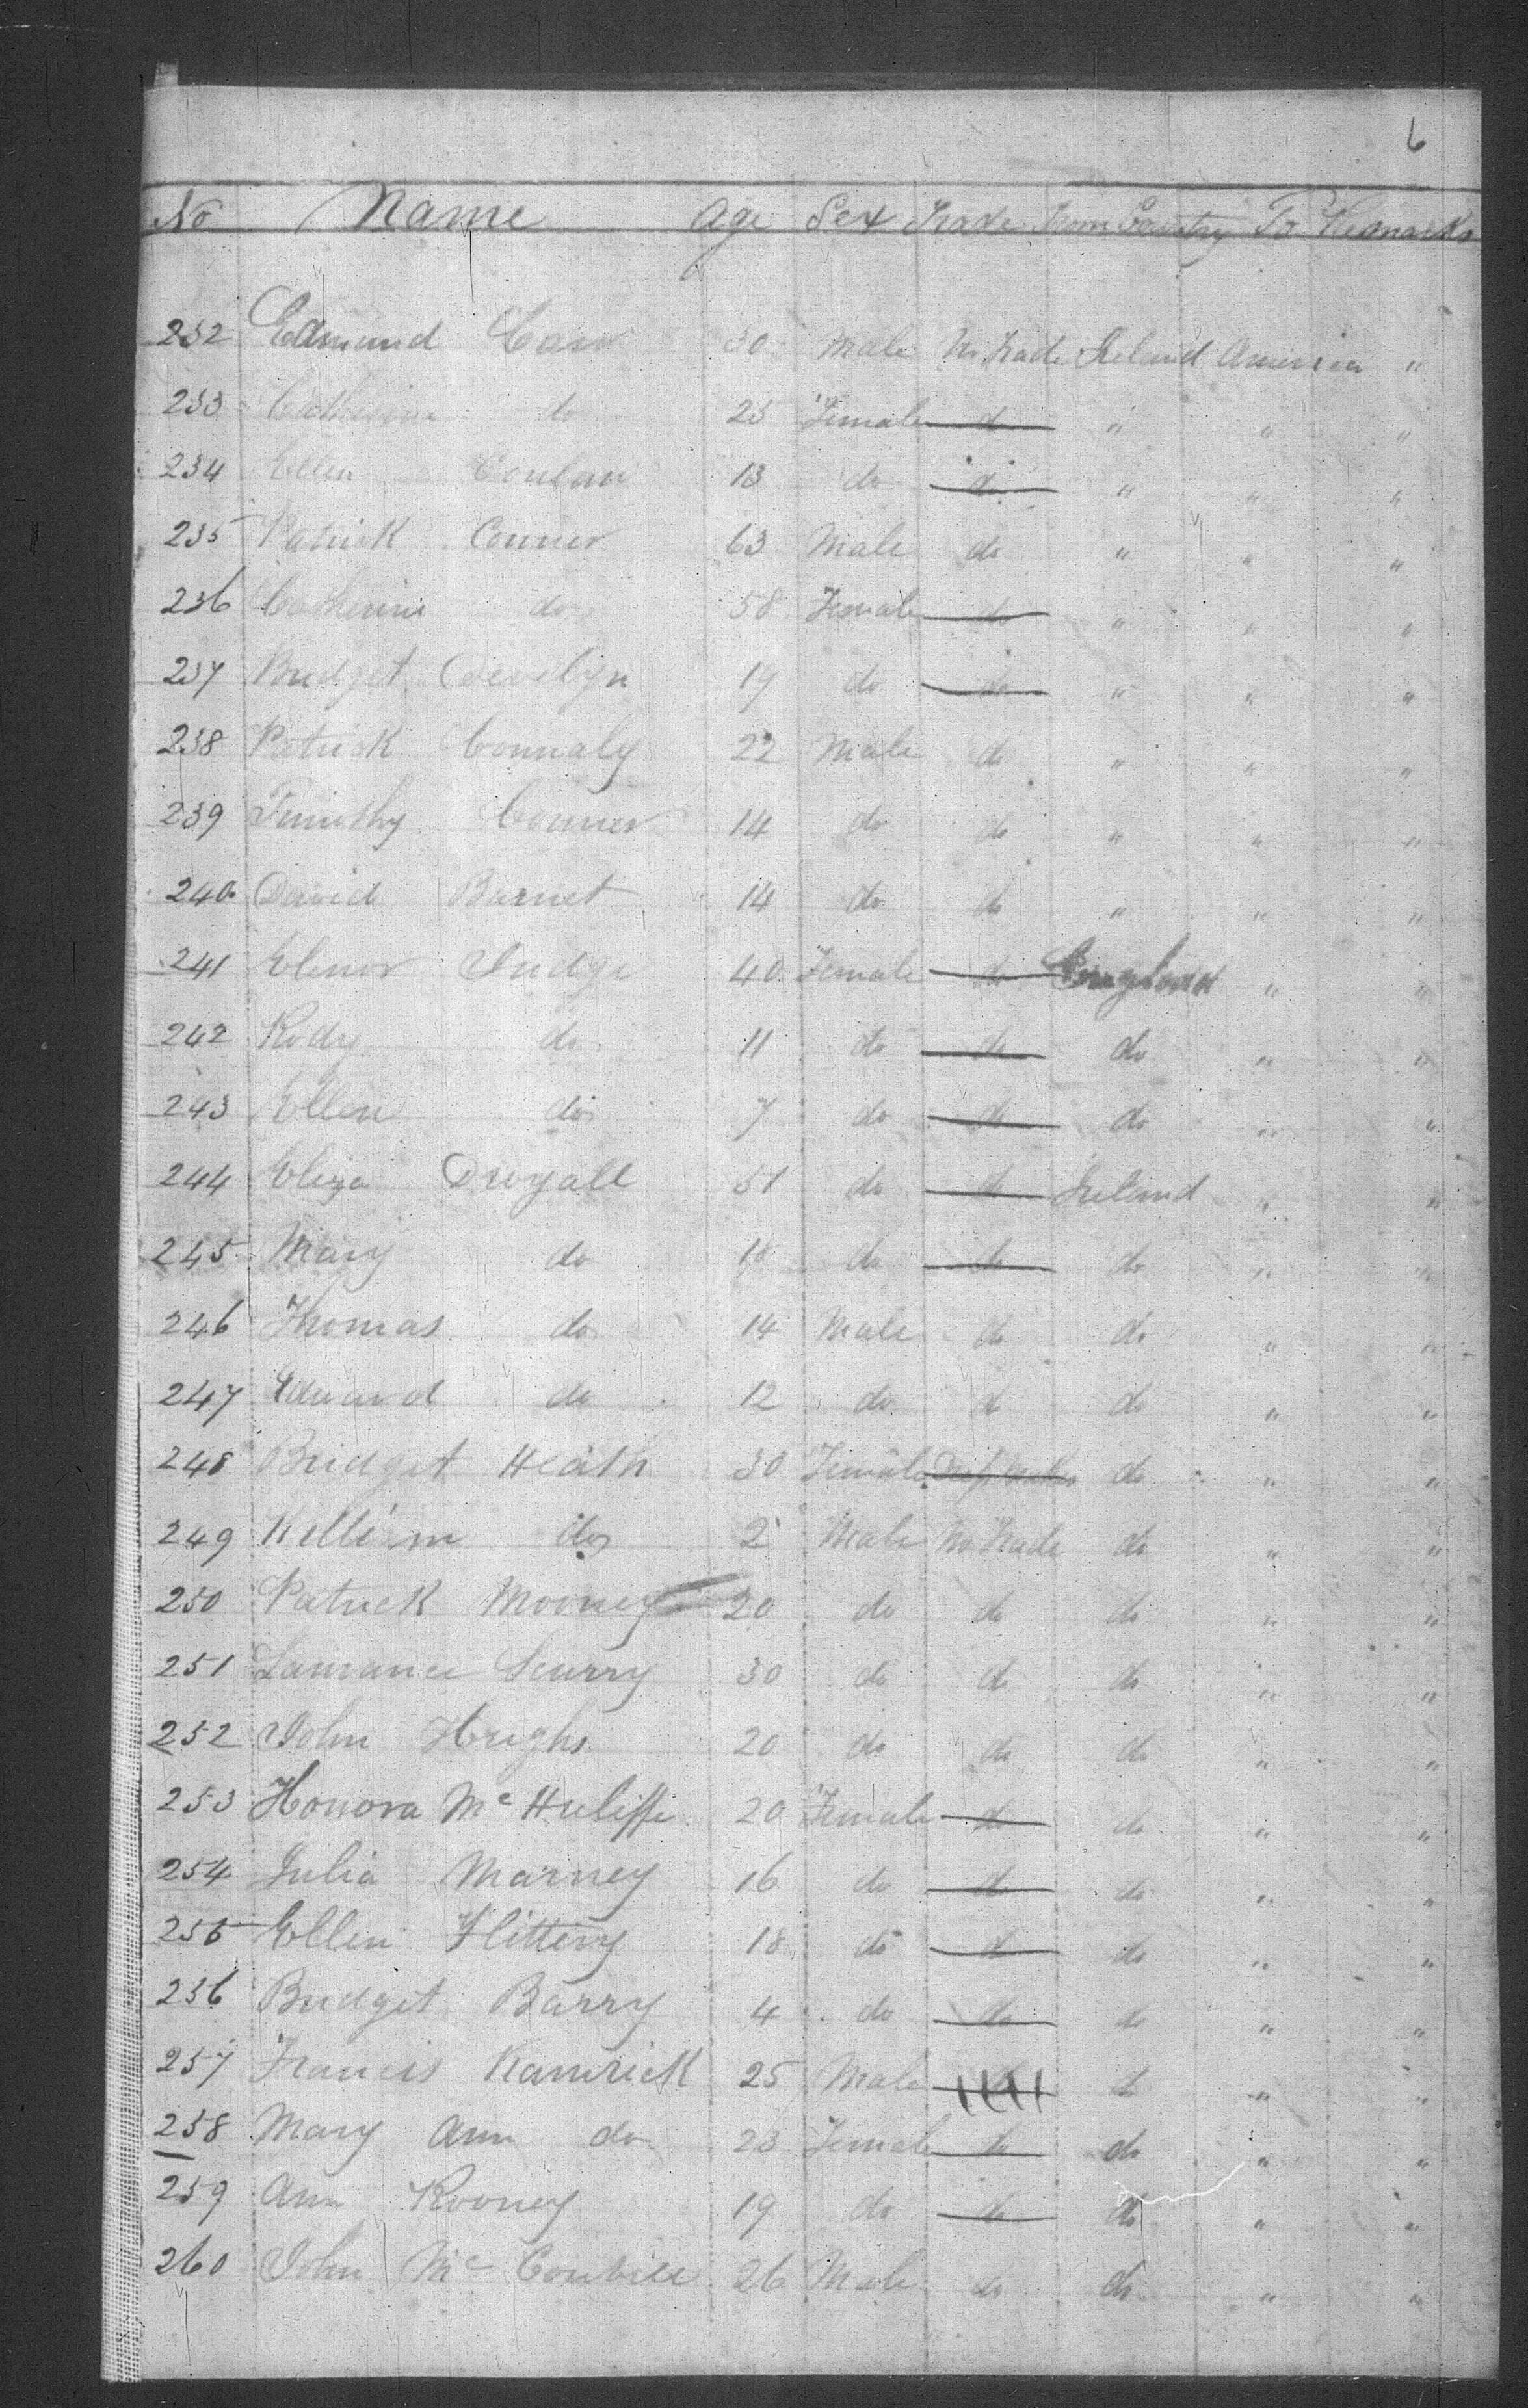 6
No Name Age Sex Trade From Country To Remarks
232 Edmund Carr 30 Male No Trade Ireland America "
233 Catherine do 25 Female do " " "
234 Ellen Conlan 13 do do " " "
235 Patrick Conner 63 Male do " " "
236 Catherine do 58 Female do " " "
237 Bridget Develyn 19 do do " " "
238 Patrick Connaly 22 Male do " " "
239 Timothy Conner 14 do do " " "
240 David Barnet 14 do do " " "
241 Elenor Judge 40 Female do England " "
242 Rody do 11 do do do " "
243 Ellen do 7 do do do " "
244 Eliza 51 do do Ireland " "
245 Mary do 18 do do do " "
246 Thomas do 14 Male do do " "
247 Edward do 12 do do do " "
248 Bridget Heath 30 Female do " "
249 do 2 Male No Trade do " "
250 Patrick Mooney 20 do do do " "
251 Lawrance Scurry 30 do do do " "
252 John Hughs 20 do do do " "
253 Honora Mc Huliffe 20 Female do do " "
254 Julia Marney 16 do do do " "
255 Ellen Flittery 18 do do do " "
256 Bridget Barry 4 do do do " "
257 Francis Kamrick 25 Male do " "
258 Mary Ann do 23 Female do do " "
259 Ann Rooney 19 do do do " "
260 John Mc 26 Male do do " "